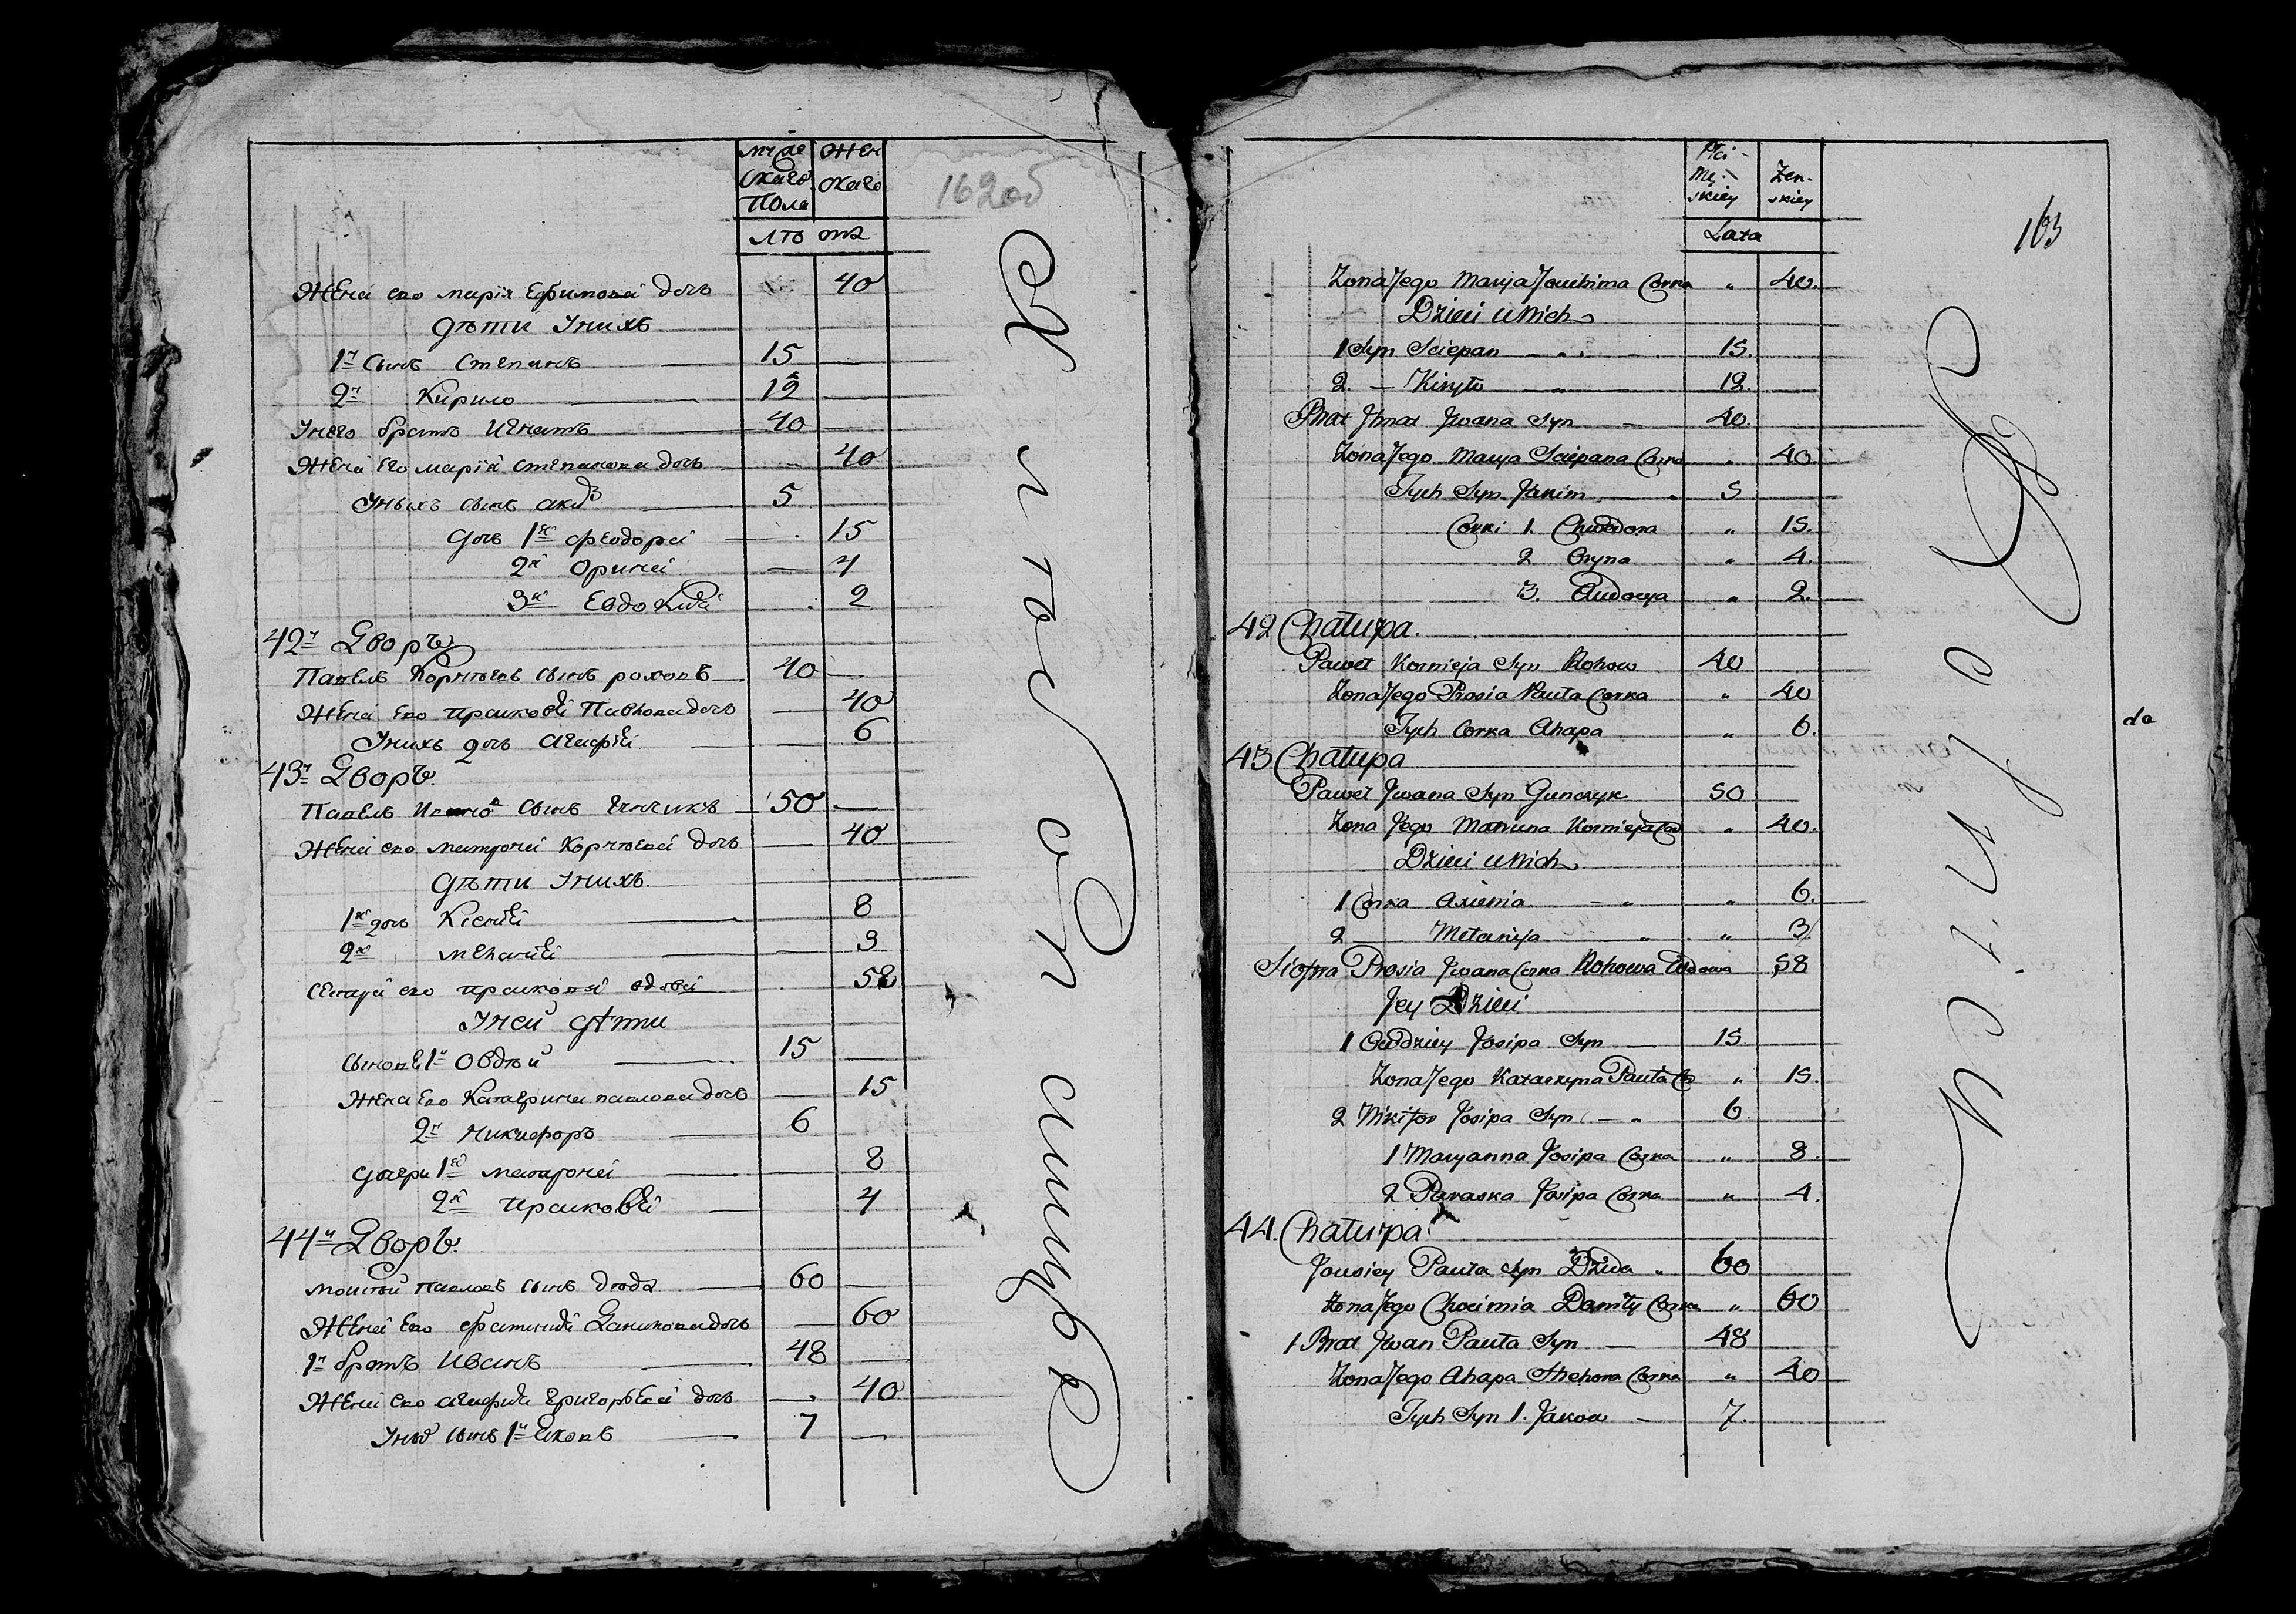 муже
скаго
Пола
жен
скаго
162об
лѣ та
Жена его мария Ефимова дочь 40
дѣти Уних
1й Сынъ Степанъ 15
2й Кирило 12
Унего братъ Игнатъ 40
Жена его мария степанова дочь 40
Уных сынъ 5
дочь 1я феодора 15
2я Орина 4
3я Евдокия 2
42й Дворъ
Павелъ Корнѣевъ сынъ роховъ 40
Жена его прасковия Павлова дочь 40
Уних дочь Агафия 6
43й Дворъ
Павелъ Ивановъ сынъ 50
Жена его матрона Корнѣева дочь 40
Дѣти Уних
1я дочь Ксения 8
2я мелания 3
Сестра его прасковия вдова 58
Уней дѣти
Сыновя 1й Овдѣй 15
Жена его Катерина павлова дочь 15
2й Никифоръ 6
дочери 1я матрона 8
2я прасковия 4
44й Дворъ
моисѣй павловъ сынъ дюда 60
Жена его Данилова дочь 60
1й братъ Иванъ 48
Жена его агафия григорьева дочь 40
Уных сынъ 1й Яковъ 7
Płci
Mę-
skiey
Żen-
skiey
Lata
163
Zona Jego Marya Jouchima Corka " 40.
Dzieci u Nich
1 Syn Sciepan 15.
2. Kiryło 12.
Brat Ihnat Jwana Syn 40.
Zona Jego Marya Sciepana Corka " 40.
Tych Syn Jakim 5
Corki 1. Chwiedora " 15.
2 Oryna " 4.
3. Audocya " 2.
42 Chałupa.
Paweł Kornieja Syn Rohow 40
Zona Jego Prosia Pauła Corka " 40
Tych Corka Ahapa " 6.
da
43 Chałupa
Paweł Jwana Syn Gunczyk 50
Zona Jego Matruna Kornieja Cor " 40.
Dzieci u Nich
1 Corka Axienia " 6.
2 Metanija " 3.
Siostra Prosia Jwana Corka Rohowa Wdowa 58
Jey Dzieci
1 Owdziey Josipa Syn 15.
Zona Jego Katarzyna Pauła Cor " 15.
2 Nikifor Josipa Syn 6.
1 Maryanna Josipa Corka " 8.
2 Paraska Josipa Corka " 4.
44. Chałupa
Jousiey Pauła Syn Dziuda 60
Zona Jego Chocimia Daniły Corka " 60
1 Brat Jwan Pauła Syn 48
Zona Jego Ahapa Hrehora Corka " 40
Tych Syn 1. Jakow 7.